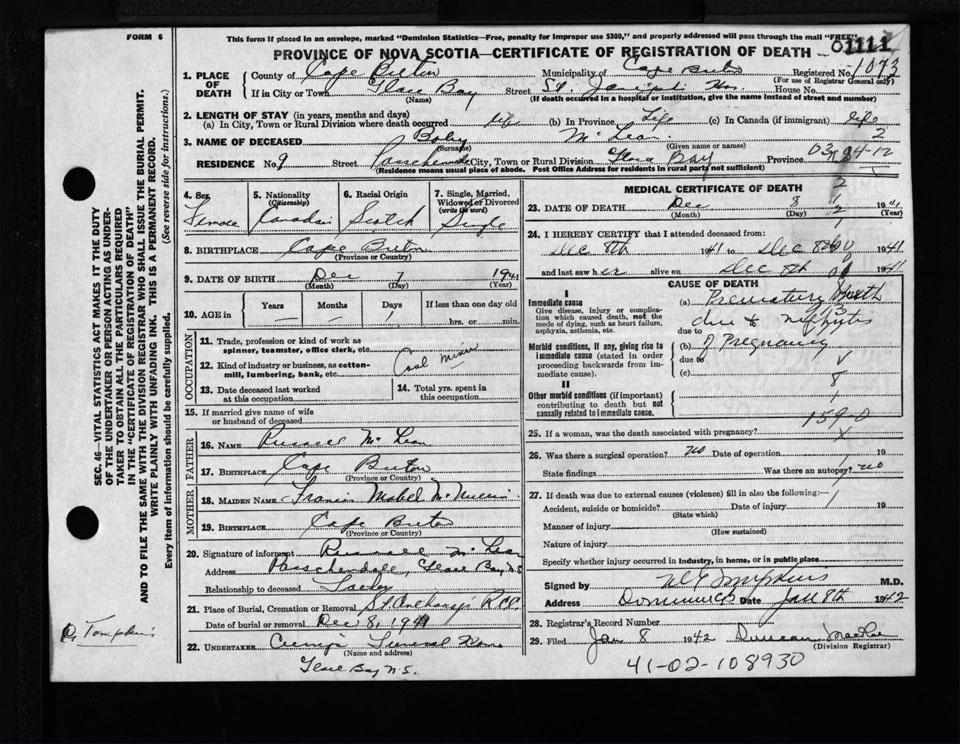 FORM 6
This form if placed in an envelope, marked "Dominion Statistics—Free, penalty for improper use $300," and properly addressed will pass through the mail "FREE"
PROVINCE OF NOVA SCOTIA—CERTIFICATE OF REGISTRATION OF DEATH
01111
1. PLACE OF DEATH
County of Cape Breton Municipality of Cape Breton Registered No. 1073
(For use of Registrar General only)
If in City or Town Glace Bay Street St. Joseph's Hos. House No.
(Name) (If death occurred in a hospital or institution, give the name instead of street and number)
2. LENGTH OF STAY (in years, months and days)
(a) In City, Town or Rural Division where death occurred life (b) In Province Life (c) In Canada (if immigrant) life
3. NAME OF DECEASED Baby McLean 2
(Surname) (Given name or names)
RESIDENCE No. 9 Street Passchendale City, Town or Rural Division Glace Bay Province
(Residence means usual place of abode. Post Office Address for residents in rural parts not sufficient)
4. Sex Female
5. Nationality (Citizenship) Canadian
6. Racial Origin Scotch
7. Single, Married, Widowed or Divorced (write the word) Single
8. BIRTHPLACE Cape Breton
(Province or Country)
9. DATE OF BIRTH Dec 7 1941
(Month) (Day) (Year)
10. AGE IN Years — Months — Days 1 If less than one day old
hrs. or min.
OCCUPATION
11. Trade, profession or kind of work as spinner, teamster, office clerk, etc.
12. Kind of industry or business, as cotton-mill, lumbering, bank, etc. Coal miner
13. Date deceased last worked at this occupation
14. Total yrs. spent in this occupation
15. If married give name of wife or husband of deceased
FATHER
16. NAME Russell McLean
17. BIRTHPLACE Cape Breton
(Province or Country)
MOTHER
18. MAIDEN NAME Francis Mabel
19. BIRTHPLACE Cape Breton
(Province or Country)
20. Signature of informant Russell McLean
Address Passchendale, Glace Bay N.S.
Relationship to deceased Father
21. Place of Burial, Cremation or Removal St. Anthony's R.C.C.
Date of burial or removal Dec 8, 1941
22. UNDERTAKER Funeral Home
(Name and address)
Glace Bay N.S.
MEDICAL CERTIFICATE OF DEATH
23. DATE OF DEATH Dec 8 1941
(Month) (Day) (Year)
24. I HEREBY CERTIFY that I attended deceased from:
Dec 8th 1941 to Dec 8th 1941
and last saw her alive on Dec 8th 1941
CAUSE OF DEATH
I
Immediate cause
Give disease, injury, or complication which caused death, not the mode of dying, such as heart failure, asphyxia, asthenia, etc.
(a) Premature Birth
due to
due to nephritis
Morbid conditions, if any, giving rise to immediate cause (stated in order proceeding backwards from immediate cause).
(b) of Pregnancy
due to
(c)
II
Other morbid conditions (if important) contributing to death but not causally related to immediate cause.
1590
25. If a woman, was the death associated with pregnancy?
26. Was there a surgical operation? no Date of operation 19
State findings Was there an autopsy? no
27. If death was due to external causes (violence) fill in also the following:—
Accident, suicide or homicide? Date of injury 19
(State which)
Manner of injury
(How sustained)
Nature of injury
Specify whether injury occurred in industry, in home, or in public place
Signed by M.D.
Address Dominion C.B. Date Jan 8th 1942
28. Registrar's Record Number
29. Filed Jan 8 1942 Duncan MacRae
(Division Registrar)
41-02-108930
SEC. 46—VITAL STATISTICS ACT MAKES IT THE DUTY
OF THE UNDERTAKER OR PERSON ACTING AS UNDER-
TAKER TO OBTAIN ALL THE PARTICULARS REQUIRED
IN THE "CERTIFICATE OF REGISTRATION OF DEATH"
AND TO FILE THE SAME WITH THE DIVISION REGISTRAR WHO SHALL ISSUE THE BURIAL PERMIT.
WRITE PLAINLY WITH UNFADING INK. THIS IS A PERMANENT RECORD.
Every item of Information should be carefully supplied. (See reverse side for instructions.)
Dr. Tompkins